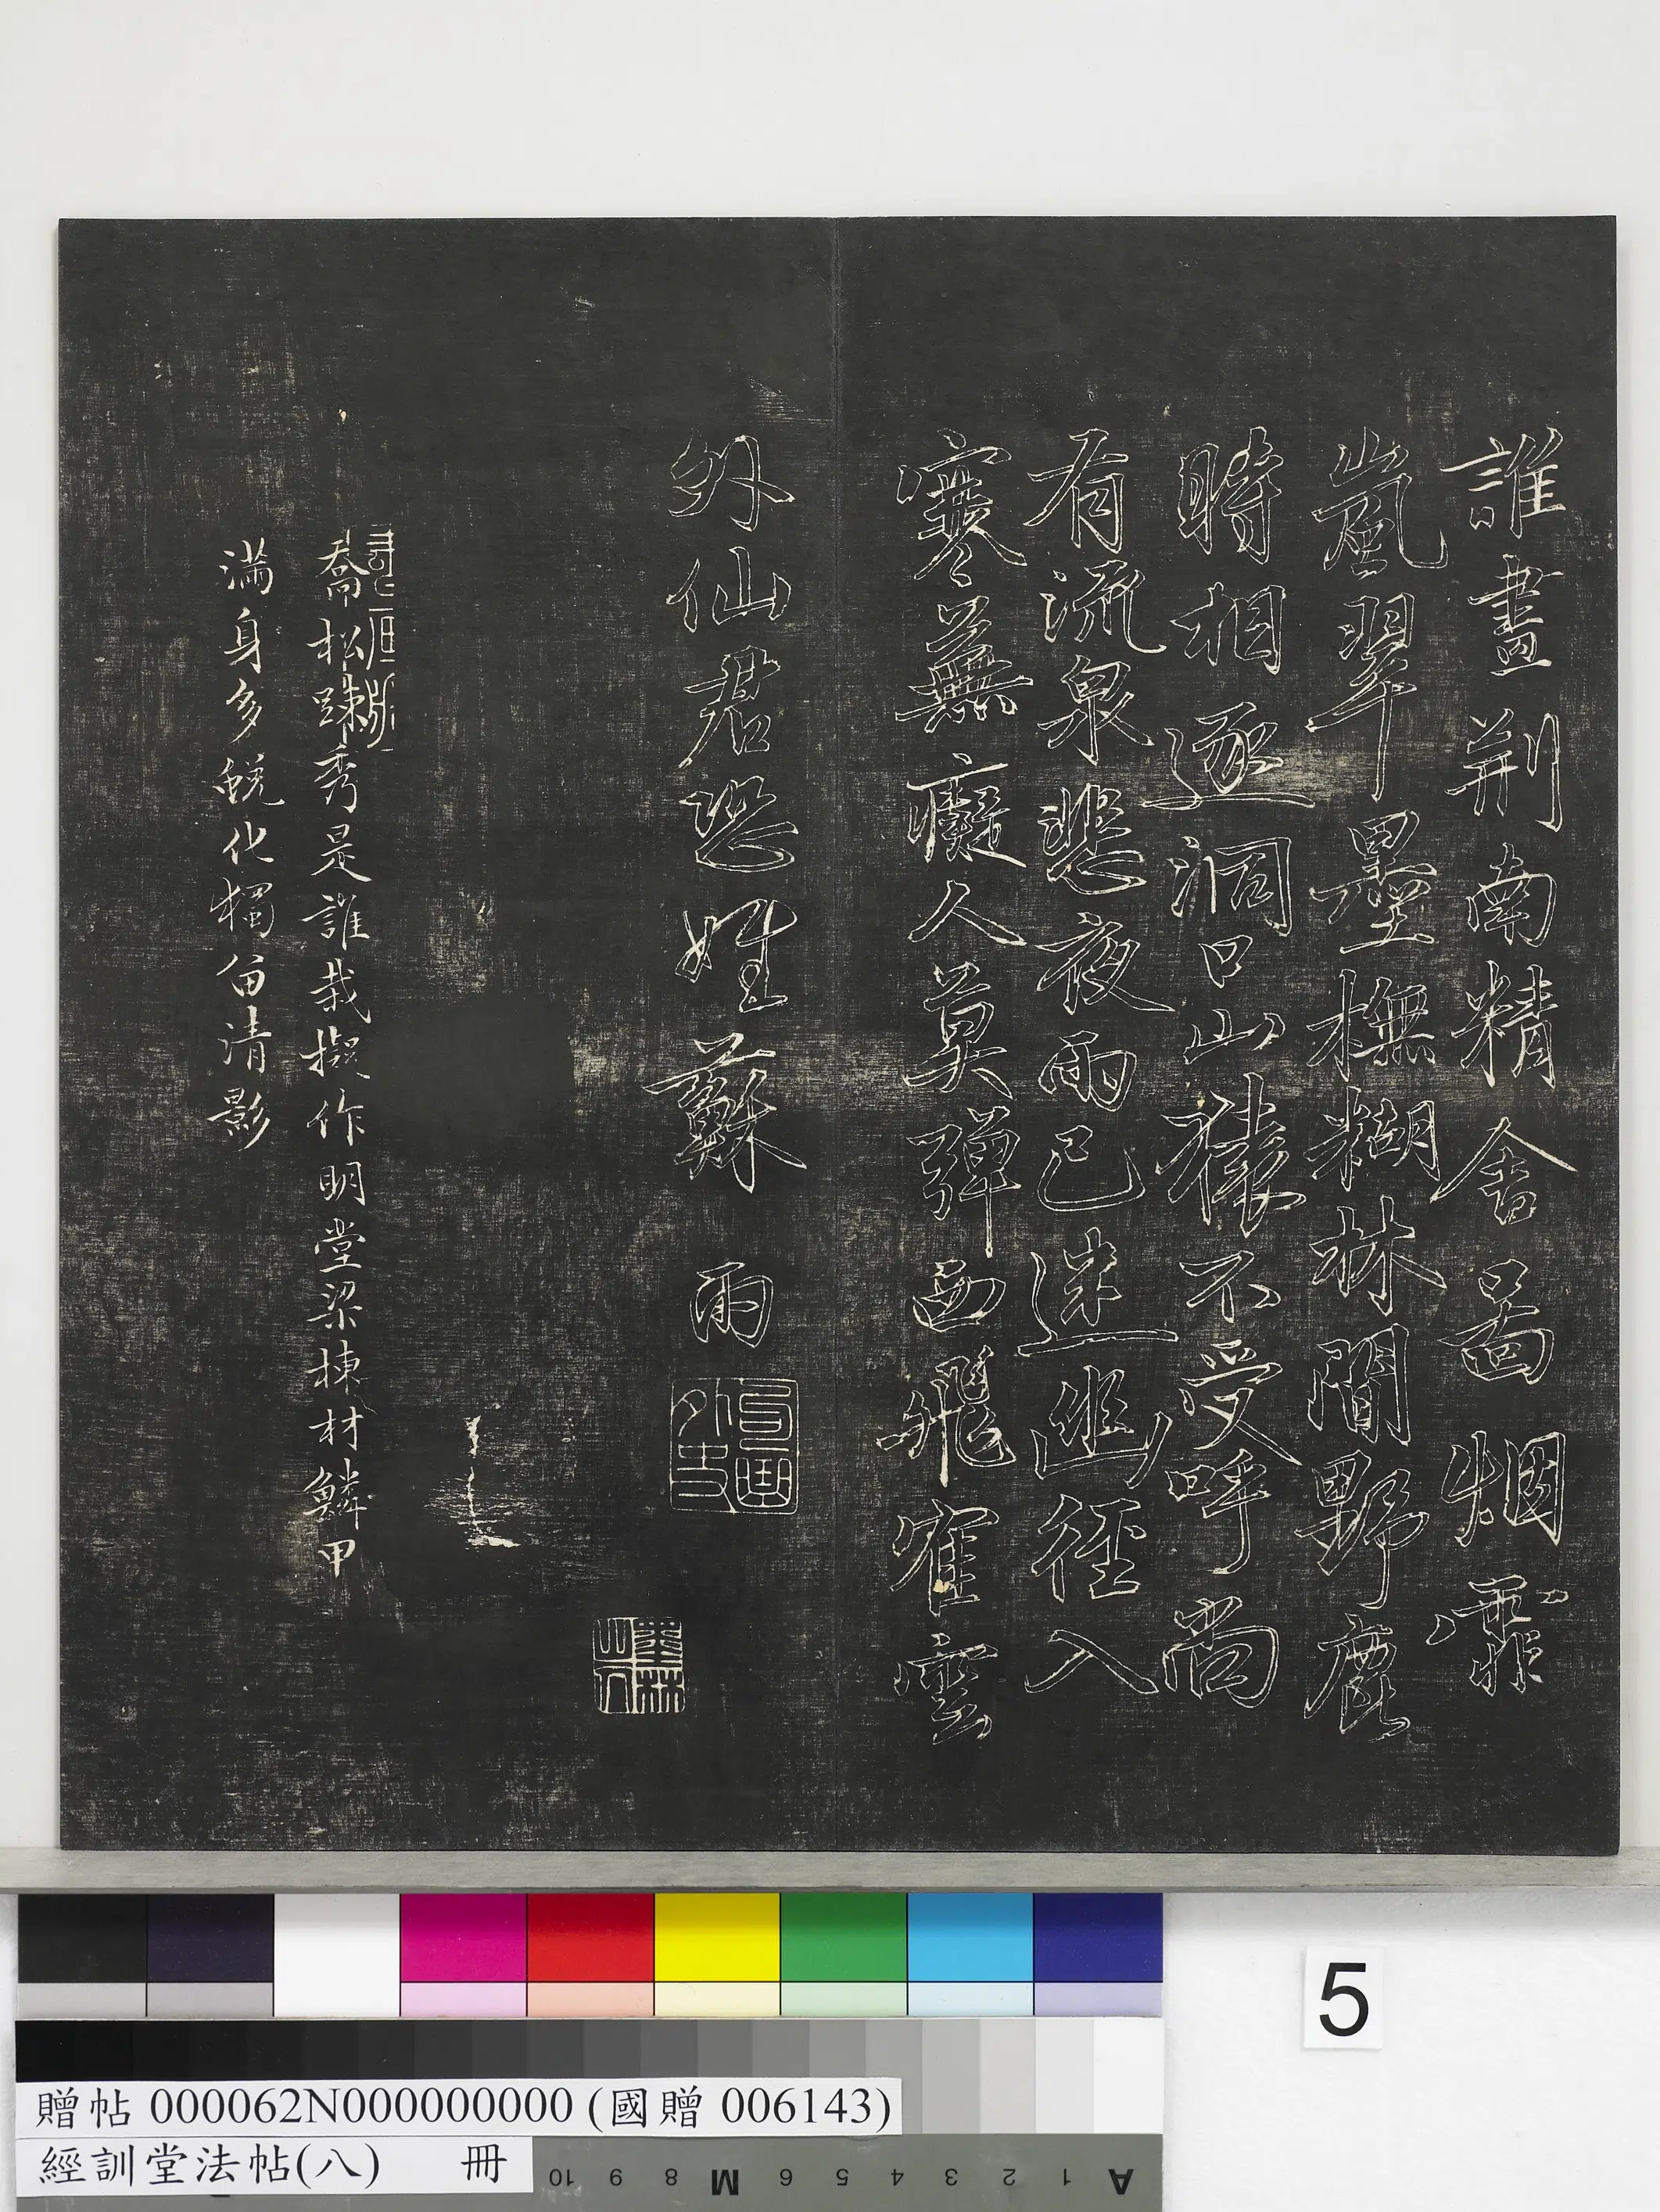 誰畫荊南精舍圖烟霏
嵐翠墨橅糊林間野鹿
時相逐洞口山猿不受呼尚
有流泉悲夜雨已迷幽徑入
寒蕪癡人莫彈西飛隺雲
外仙君恐姓蘇 雨
喬松踈秀是誰栽擬作明堂梁棟材鱗甲
滿身多蛻化獨留清影
5
贈帖 000062N000000000 (國贈 006143)
經訓堂法帖(八) 冊
10 9 8 M 6 5 4 3 2 1 A